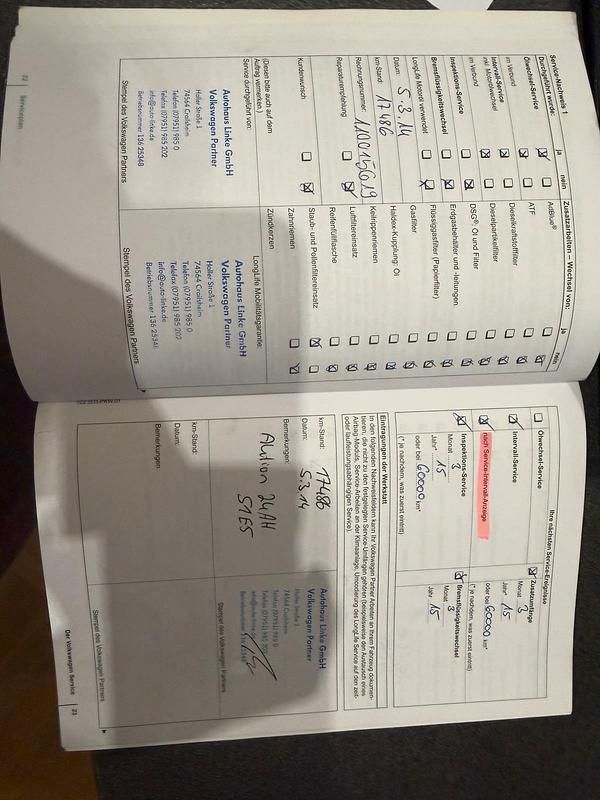 Service-Nachweis 1
Durchgeführt wurde:
ja
nein
Ölwechsel-Service
im Verbund
Intervall-Service
inkl. Motorölwechsel
im Verbund
Inspektions-Service
Bremsflüssigkeitswechsel
LongLife Motoröl verwendet
Datum: 5.3.14
km-Stand: 17486
Rechnungsnummer:
Reparaturempfehlung
Kundenwunsch
(Diesen bitte auch auf dem
Auftrag vermerken.)
Service durchgeführt von:
Autohaus Linke GmbH
Volkswagen Partner
Haller Straße 1
74564 Crailsheim
Telefon (07951) 985 0
Telefax (07951) 985 202
info@auto-linke.de
Betriebsnummer 136 25348
Stempel des Volkswagen Partners
22
Serviceplan
Zusatzarbeiten – Wechsel von:
ja
nein
AdBlue®
ATF
Dieselkraftstofffilter
Dieselpartikelfilter
DSG®: Öl und Filter
Erdgasbehälter und -leitungen
Flüssiggasfilter (Papierfilter)
Gasfilter
Haldex-Kupplung: Öl
Keilrippenriemen
Luftfiltereinsatz
Reifenfüllflasche
Staub- und Pollenfiltereinsatz
Zahnriemen
Zündkerzen
LongLife Mobilitätsgarantie:
Autohaus Linke GmbH
Volkswagen Partner
Haller Straße 1
74564 Crailsheim
Telefon (07951) 985 0
Telefax (07951) 985 202
info@auto-linke.de
Betriebsnummer 136 25348
Stempel des Volkswagen Partners
Ihre nächsten Service-Ereignisse
Ölwechsel-Service
Intervall-Service
nach Service-Intervall-Anzeige
Inspektions-Service
Monat 3
Jahr* 15
oder bei 60000 km*
(* je nachdem, was zuerst eintritt)
Zusatzumfänge
Monat 3
Jahr* 15
oder bei 60000 km*
(* je nachdem, was zuerst eintritt)
Bremsflüssigkeitswechsel
Monat 3
Jahr 15
Eintragungen der Werkstatt
In den folgenden Nachweisfeldern kann Ihr Volkswagen Partner Arbeiten an Ihrem Fahrzeug dokumen-
tieren, die nicht zu den festgelegten Service-Umfängen gehören (beispielsweise den Austausch eines
Airbag-Moduls, Service-Arbeiten an der Klimaanlage, Umcodierung des LongLife Service auf den zeit-
oder laufleistungsabhängigen Service).
km-Stand: 17486
Datum: 5.3.14
Bemerkungen:
Aktion 24AH
S1E5
Autohaus Linke GmbH
Volkswagen Partner
Haller Straße 1
74564 Crailsheim
Telefon (07951) 985 0
Stempel des Volkswagen Partners
km-Stand:
Datum:
Bemerkungen:
Stempel des Volkswagen Partners
Der Volkswagen Service
23